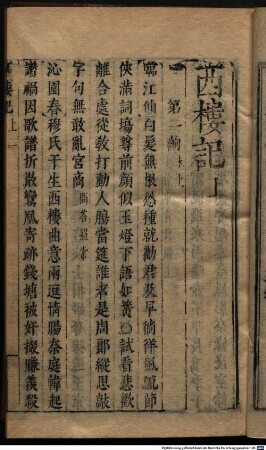 西樓記上
第一齣
臨江仙白髮無根愁種就勸君及早徜徉風流節
俠滿詞塲尊前顔似玉燈下語如簧 試看悲歡
離合處從教打動人腸當筵誰者是周郎縱思敲
字句無敢亂宮商
沁園春穆氏于生西樓曲意兩逗情腸奈庭幃起
肅禍因歌譜折散鸞鳳寄跡錢塘被奸掇賺義殺
樓記 上 一